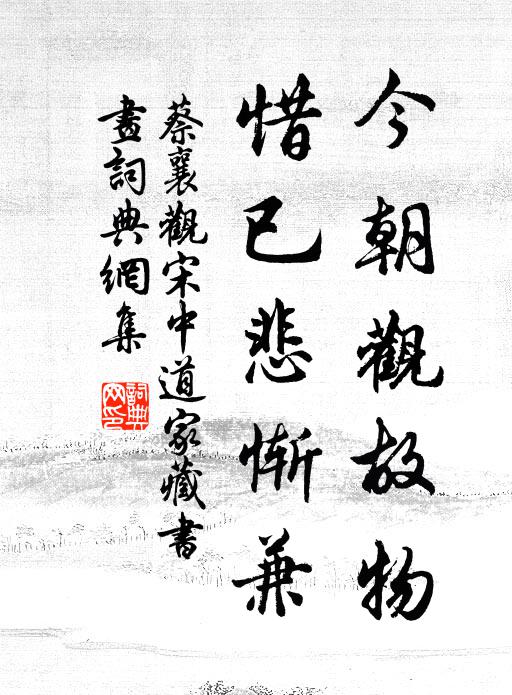 今朝觀故物
惜已悲慚兼
蔡襄觀宋中道家藏書
畫詞典網集
詞典网印